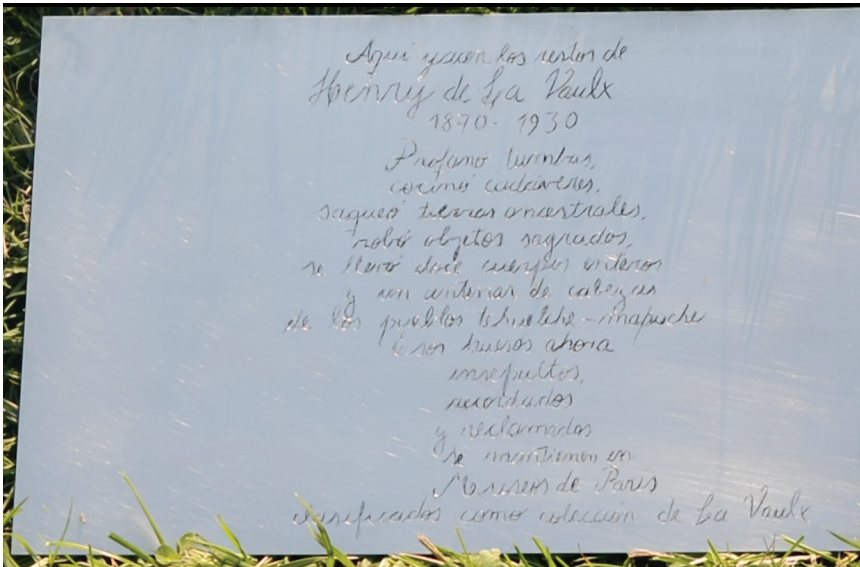 Aqui yacen los restos de
Henry de La Vaulx
1870-1930
Profanó tumbas,
cocinó cadáveres,
saqueó tierras ancestrales,
robó objetos sagrados,
se llevó doce cuerpos enteros
y un centenar de cabezas
de los pueblos tehuelche-mapuche
Esos huesos ahora
insepultos,
recordados
y reclamados
se mantienen en
Museos de Paris
clasificados como colección de La Vaulx